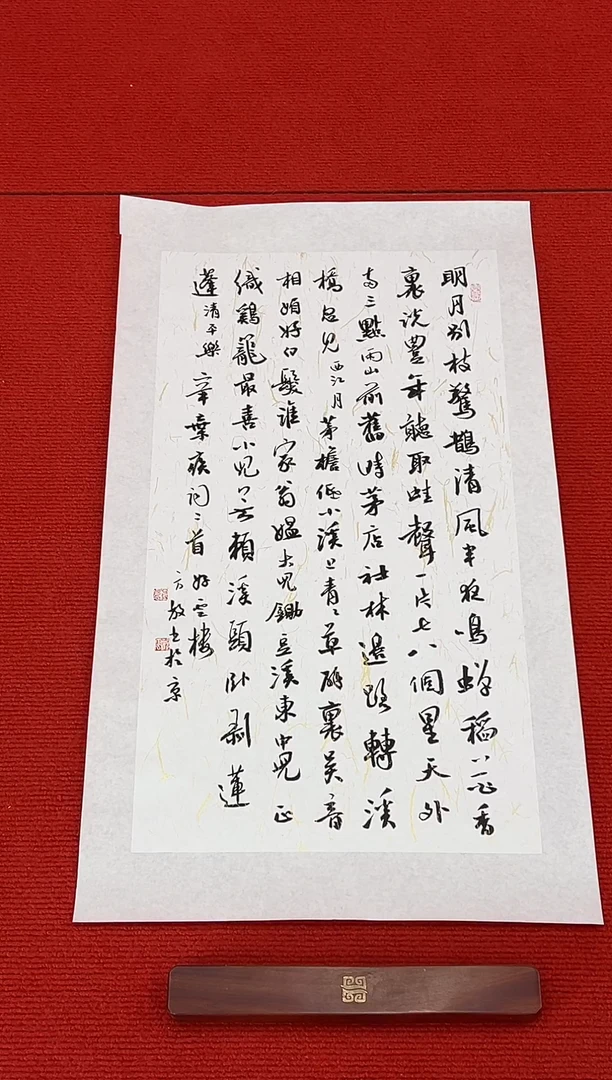 明月别枝驚鵲清風半夜鳴蟬稻花香
裏说豐年聽取蛙聲一片七八個星天外
两三點雨山前舊時茅店社林邊路轉溪
橋忽见西江月茅檐低小溪上青々草醉裏吴音
相媚好白髮誰家翁媪大兒鋤豆溪東中兒正
織鷄籠最喜小兒亡賴溪頭卧剥蓮
蓬清平樂辛棄疾词二首好雲樓
方书於京